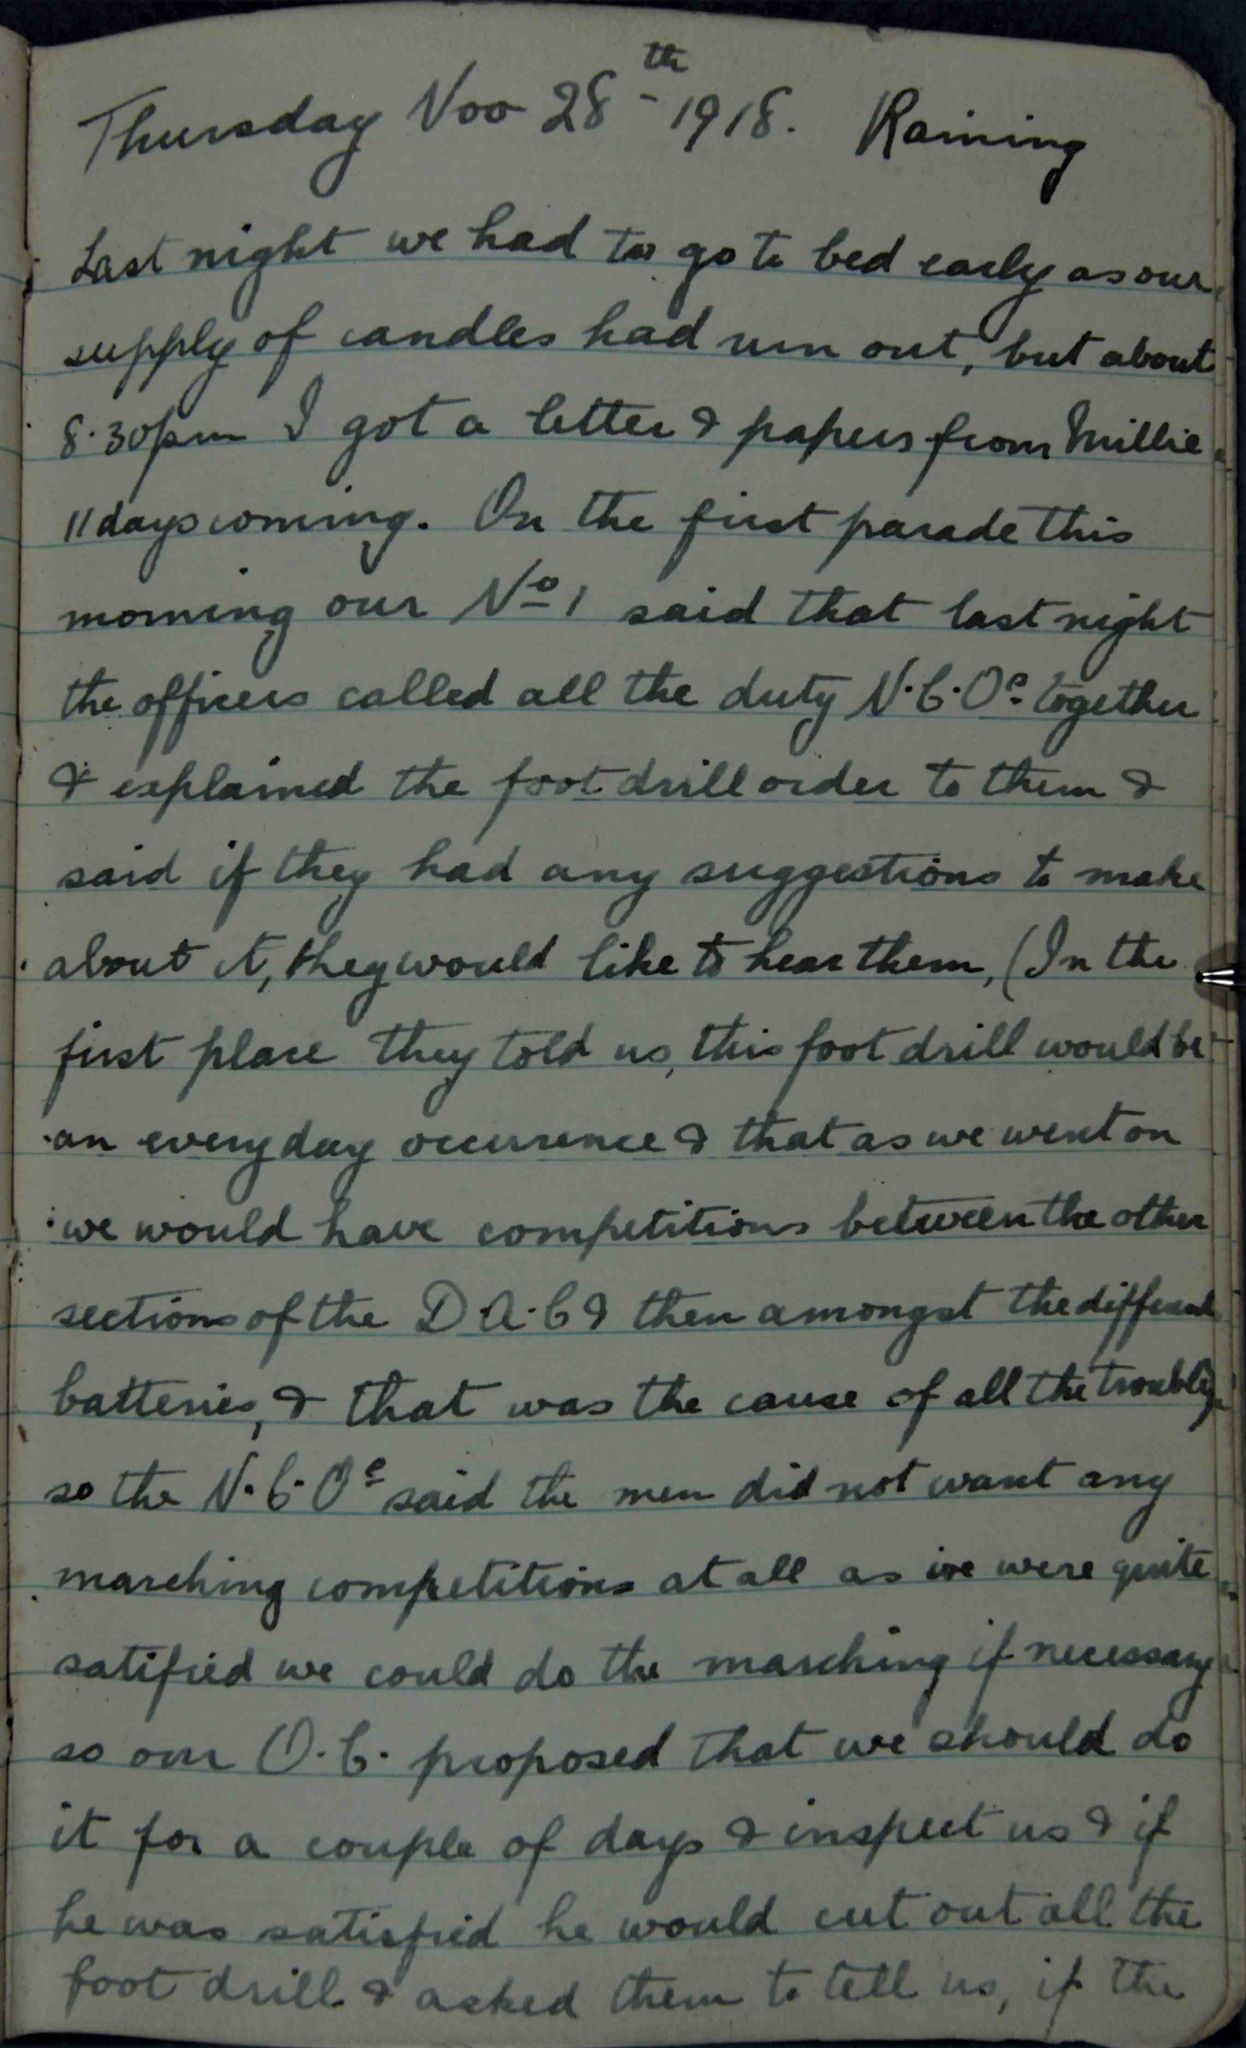 Thursday Nov 28th 1918. Raining
Last night we had to go to bed early as our
supply of candles had run out, but about
8.30pm I got a letter & papers from Millie
11 days coming. On the first parade this
morning our No 1 said that last night
the officers called all the duty N.C.Os together
& explained the foot drill order to them &
said if they had any suggestions to make
about it, they would like to hear them, (In the
first place they told us, this foot drill would be
an everyday occurrence & that as we went on
we would have competitions between the other
sections of the D.A.C & then amongst the different
batteries, & that was the cause of all the trouble,
so the N.C.Os said the men did not want any
marching competitions at all as we were quite
satified we could do the marching if necessary
so our O.C. proposed that we should do
it for a couple of days & inspect us & if
he was satisfied he would cut out all the
foot drill & asked them to tell us, if the